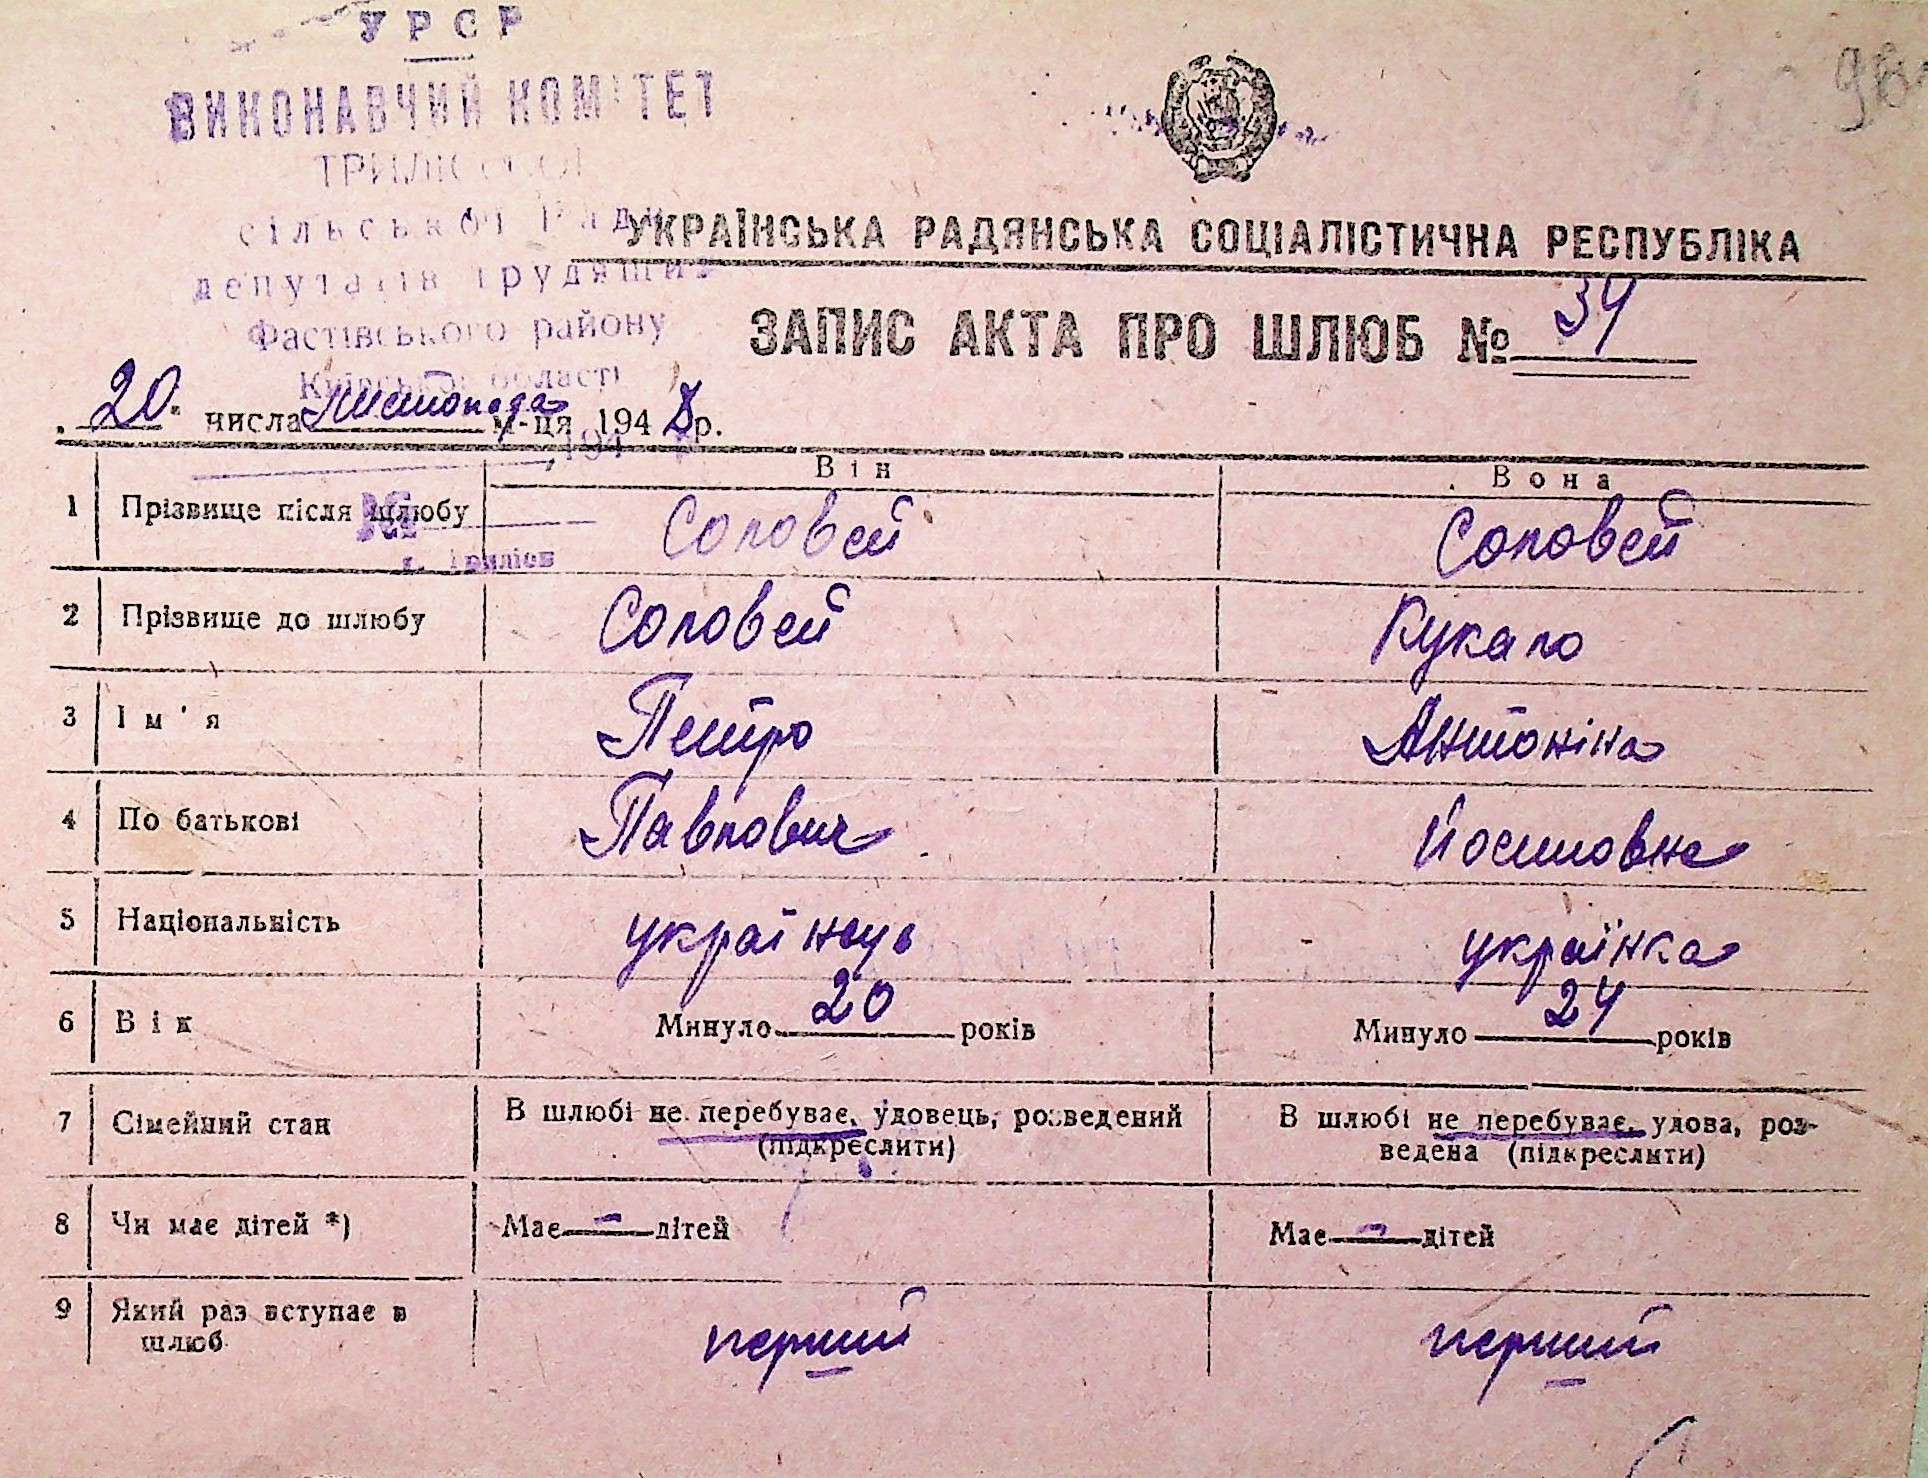 УРСР
ВИКОНАВЧИЙ КОМІТЕТ
ТРИЛІСЬКОЇ
сільської Ради
депутатів трудящих
Фастівського району
Київської області
194
№
с. Триліси
98
УКРАЇНСЬКА РАДЯНСЬКА СОЦІАЛІСТИЧНА РЕСПУБЛІКА
ЗАПИС АКТА ПРО ШЛЮБ № 34
„20“ числа Листопада м-ця 1948 р.
Він Вона
1 Прізвище після шлюбу Соловей Соловей
2 Прізвище до шлюбу Соловей Кукало
3 Ім'я Петро Антоніна
4 По батькові Павлович Йосиповна
5 Національність українець українка
6 Вік Минуло 20 років Минуло 24 років
7 Сімейний стан В шлюбі не перебуває, удовець, розведений (підкреслити) В шлюбі не перебуває, удова, роз-
ведена (підкреслити)
8 Чи має дітей *) Має - дітей Має - дітей
9 Який раз вступає в
шлюб перший перший